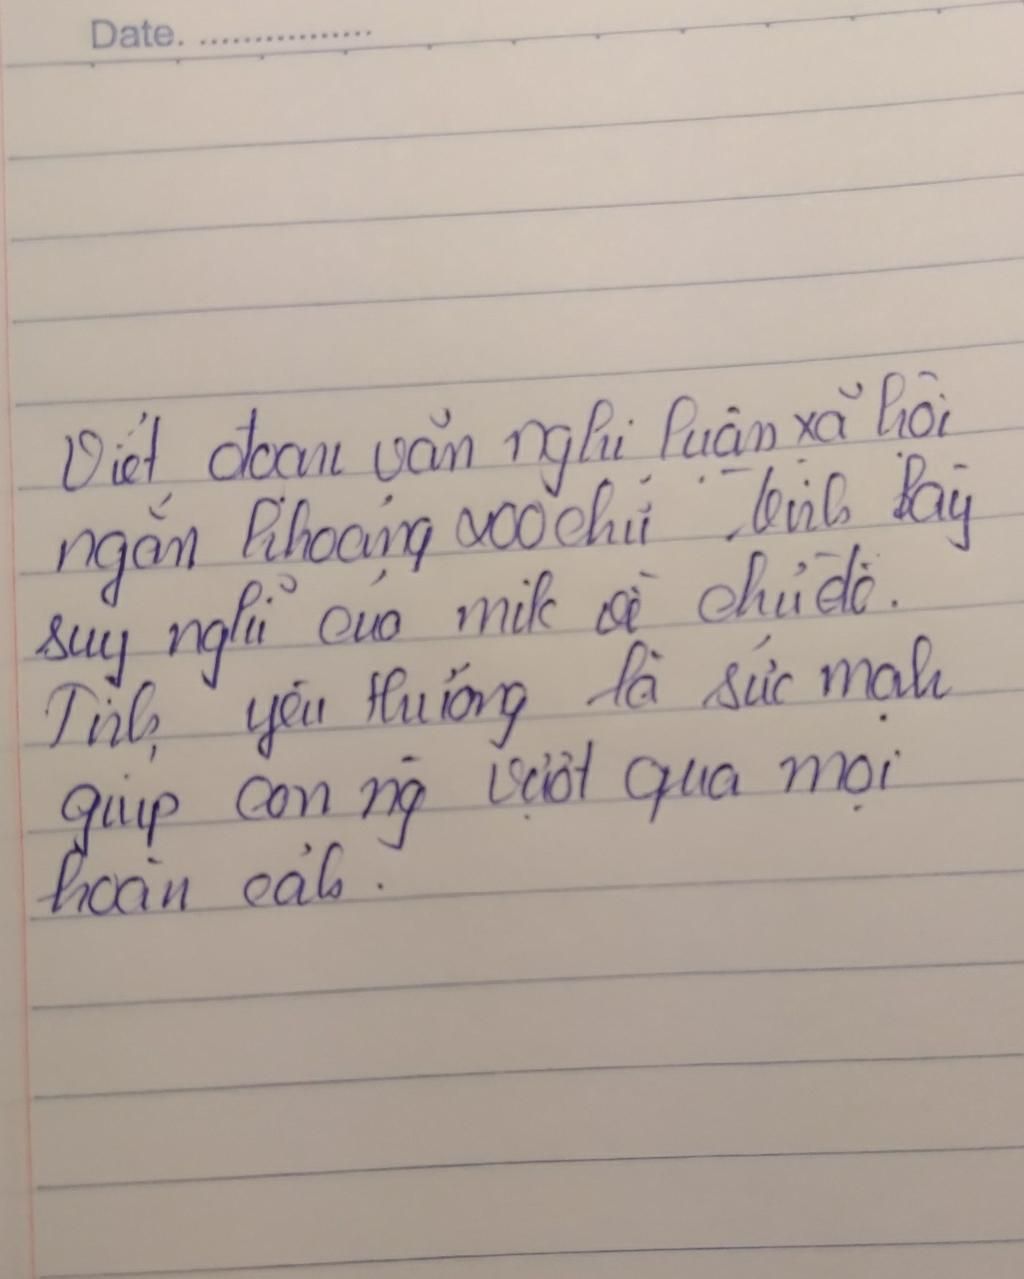 Date. ................
Viết đoan văn nghi luân xã hôi
ngắn khoảng 200 chữ bày
suy nghĩ của mik về chủ đề.
Tình yêu thương là sức mạh
giúp con ng vượt qua mọi
hoàn cảh.